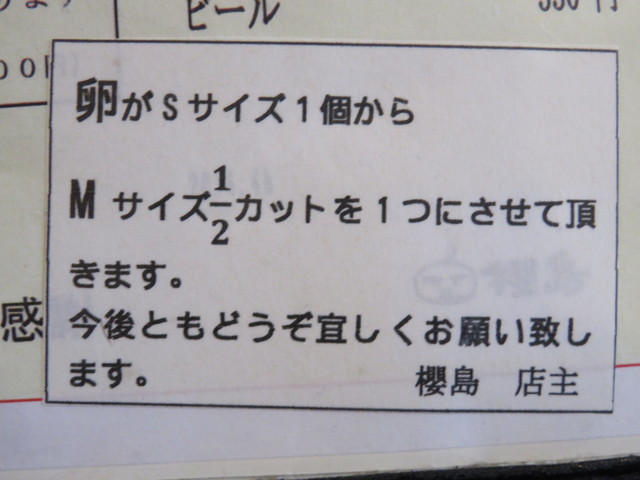 ビール
卵がSサイズ1個から
Mサイズ1/2カットを1つにさせて頂
きます。
感
今後ともどうぞ宜しくお願い致し
ます。 櫻島 店主